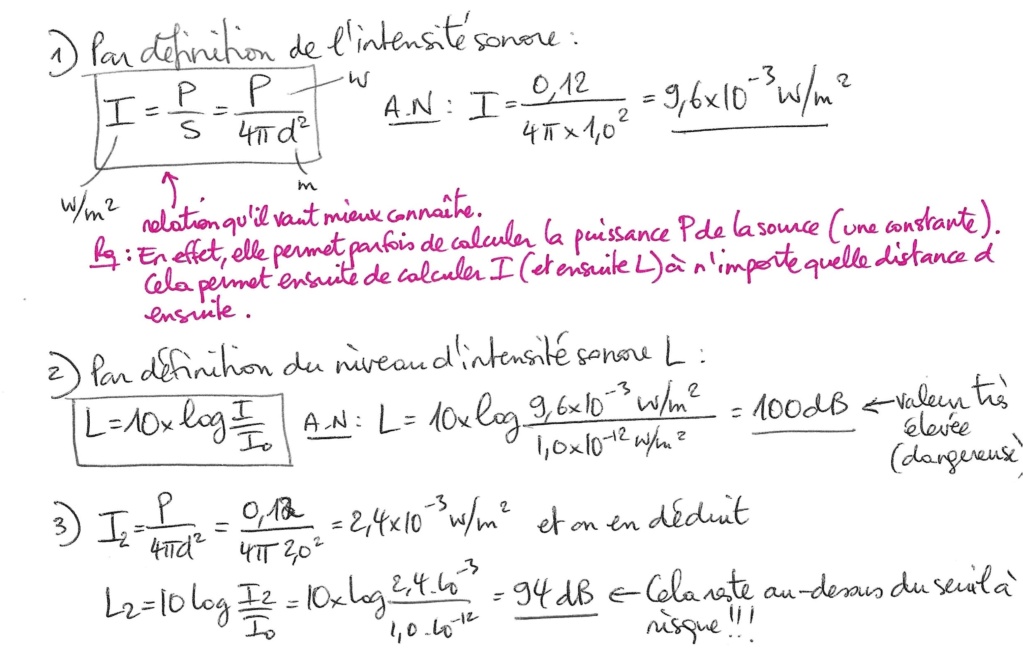 1) Par définition de l'intensité sonore :
I = P/S = P/4πd² W A.N : I = 0,12/4π×1,0² = 9,6×10⁻³ W/m²
W/m² m
relation qu'il vaut mieux connaître.
Rq : En effet, elle permet parfois de calculer la puissance P de la source (une constante).
Cela permet ensuite de calculer I (et ensuite L) à n'importe quelle distance d
ensuite.
2) Par définition du niveau d'intensité sonore L :
L=10× log I/I₀ A.N : L = 10× log 9,6×10⁻³ W/m²/1,0×10⁻¹² W/m² = 100dB ← valeur très
élevée
(dangereuse)
3) I₂ = P/4πd² = 0,12/4π 2,0² = 2,4×10⁻³ W/m² et on en déduit
L₂=10 log I₂/I₀ = 10× log 2,4.10⁻³/1,0.10⁻¹² = 94 dB ← Cela reste au-dessus du seuil à
risque !!!